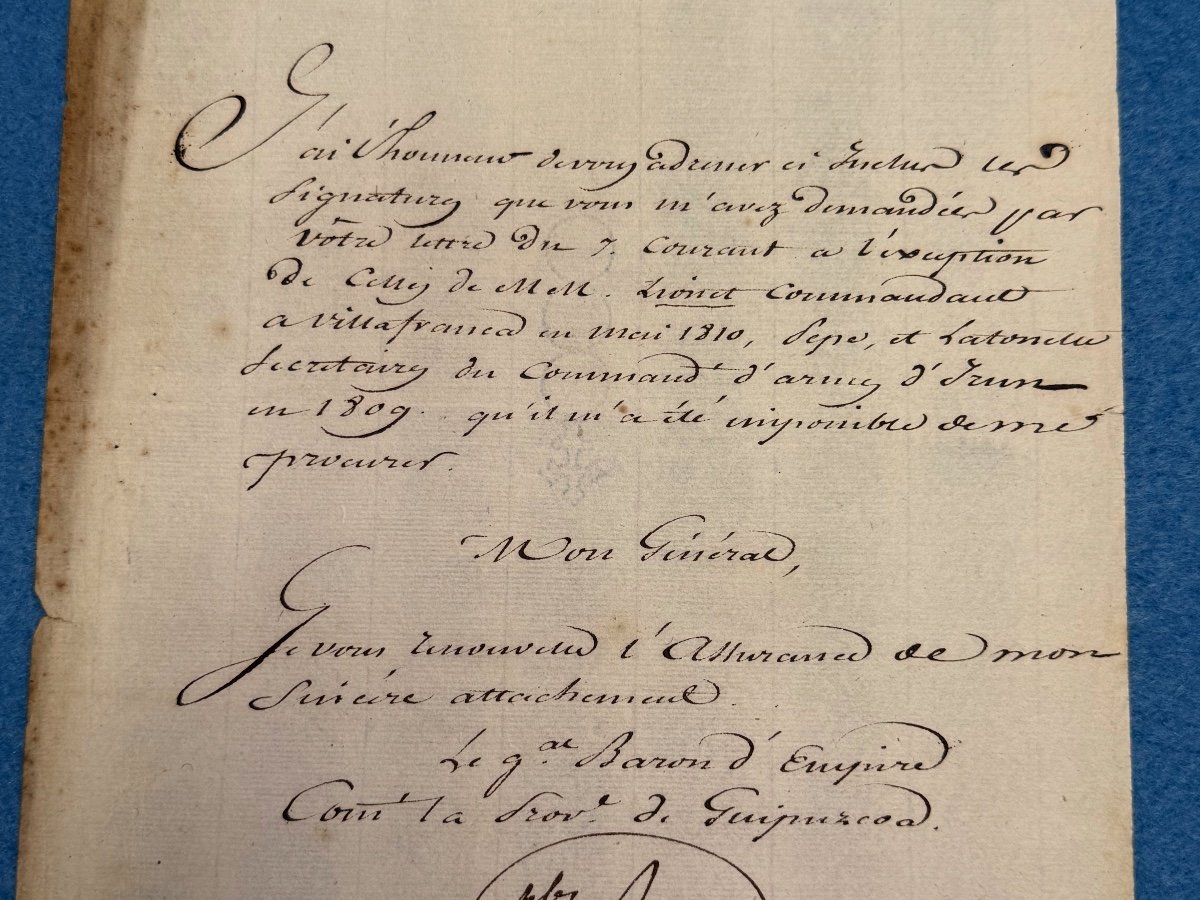 J'ai l'honneur de vous adresser ci Inclus les
Signatures que vous m'avez demandées par
vôtre lettre du 7. Courant a l'éxception
de Celles de MM. Lionet Commandant
a Villafranca en mai 1810, Pepe, et Latonelle
Secretaires du Command.t d'armes d'Irun
en 1809. qu'il m'a été impossible de me
procurer.
Mon Général,
Je vous renouvelle l'Assurance de mon
Sincére attachement.
Le g.al Baron d'Empire
Com.t la Prov.e de Guipuzcoa.